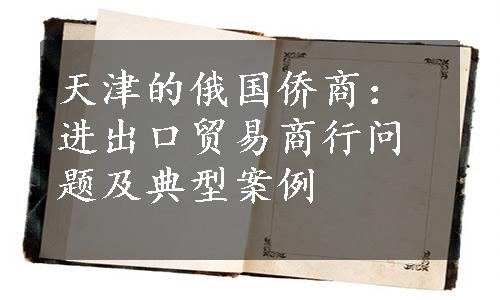 天津的俄国侨商：
进出口贸易商行问
题及典型案例